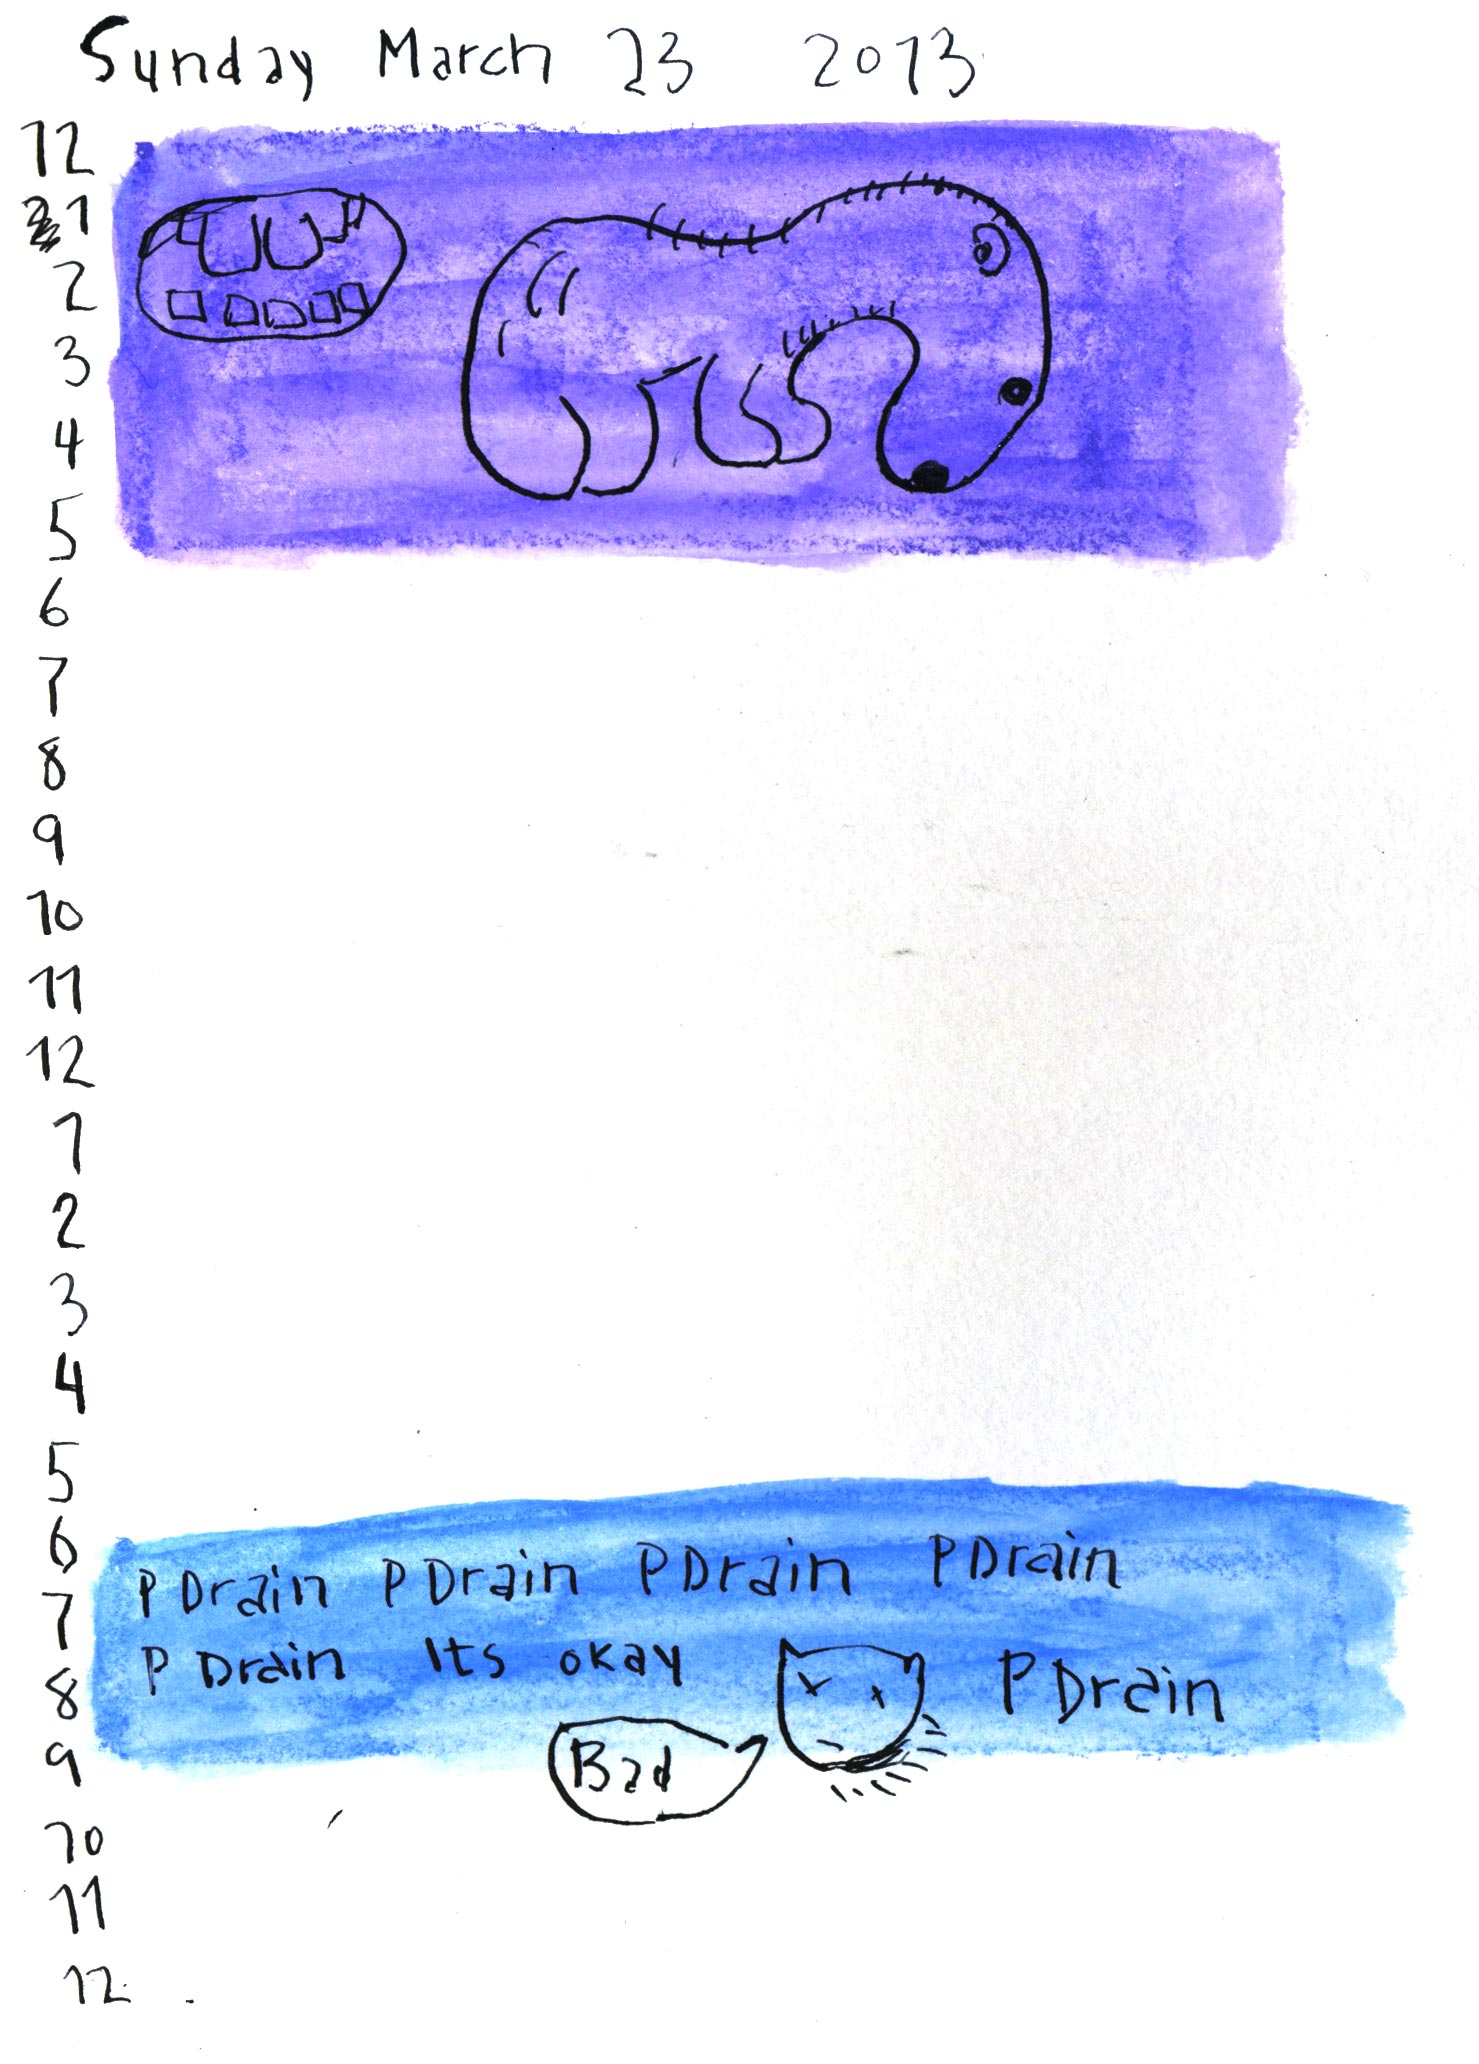 Sunday March 23 2013
12
1
2
3
4
5
6
7
8
9
10
11
12
1
2
3
4
5
6
P Drain P Drain P Drain P Drain
7
P Drain Its okay P Drain
8
Bad
9
10
11
12